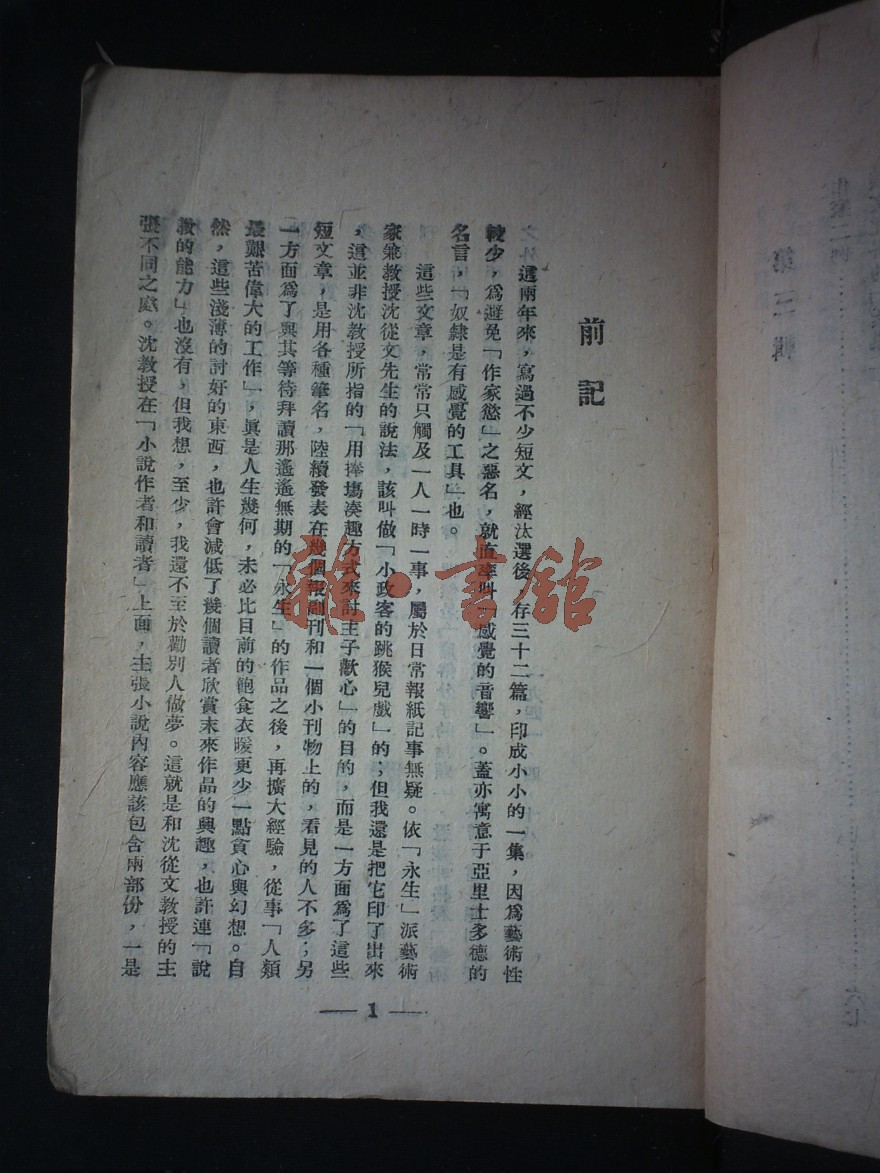 前記
這兩年來，寫過不少短文，經汰選後，存三十二篇，印成小小的一集，因爲藝術性
較少，爲避免「作家慾」之惡名，就直率叫「感覺的音響」。蓋亦寓意于亞里士多德的
名言，「奴隸是有感覺的工具」也。
這些文章，常常只觸及一人一時一事，屬於日常報紙記事無疑。依「永生」派藝術
家兼教授沈從文先生的說法，該叫做「小政客的跳猴兒戲」的；但我還是把它印了出來
，這並非沈教授所指的「用捧塲凑趣方式來討主子歡心」的目的，而是一方面爲了這些
短文章，是用各種筆名，陸續發表在幾個報副刊和一個小刊物上的，看見的人不多；另
一方面爲了與其等待拜讀那遙遙無期的「永生」的作品之後，再擴大經驗，從事「人類
最艱苦偉大的工作」，眞是人生幾何，未必比目前的飽食衣暖更少一點貪心與幻想。自
然，這些淺薄的討好的東西，也許會減低了幾個讀者欣賞未來作品的興趣，也許連「說
教的能力」也沒有，但我想，至少，我還不至於勸別人做夢。這就是和沈從文教授的主
張不同之處。沈教授在「小說作者和讀者」上面，主張小說內容應該包含兩部份，一是
— 1 —
第三輯
雜·書館